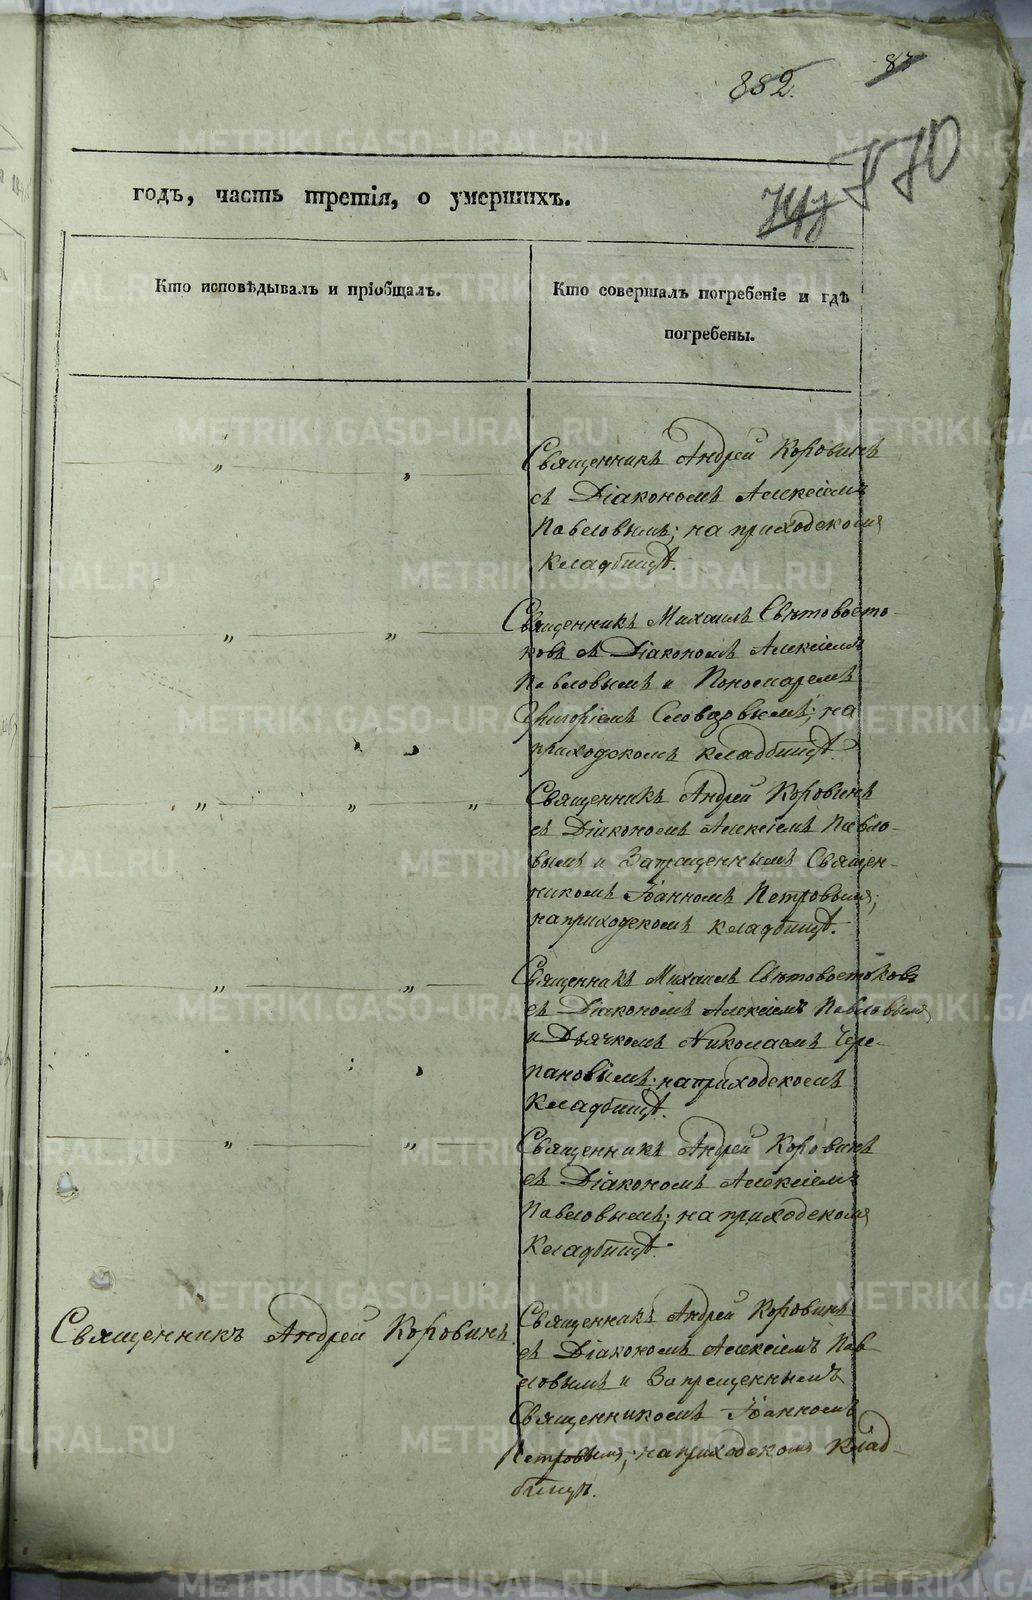 882.
87
870
годъ, часть третія, о умершихъ.
Кто исповѣдывалъ и пріобщалъ.
Кто совершалъ погребеніе и гдѣ
погребены.
Священникъ Андрей Коровинъ
съ Діакономъ Алексіемъ
Павловымъ; на приходскомъ
кладбищѣ.
Священникъ Михаилъ Свѣтовосто-
ковъ съ Діакономъ Алексіемъ
Павловымъ и Пономаремъ
Григоріемъ Словцовымъ; на
приходскомъ кладбищѣ.
Священникъ Андрей Коровинъ
съ Діакономъ Алексіемъ Павло-
вымъ и Запрещеннымъ Священ-
никомъ Іоанномъ Петровымъ;
на приходскомъ кладбищѣ.
Священникъ Михаилъ Свѣтовостоковъ
съ Діакономъ Алексіемъ Павловымъ
и Дьячкомъ Николаемъ Чере-
пановымъ; на приходскомъ
Кладбищѣ.
Священникъ Андрей Коровинъ
съ Діакономъ Алексіемъ
Павловымъ; на приходскомъ
Кладбищѣ.
Священникъ Андрей Коровинъ
Священникъ Андрей Коровинъ
съ Діакономъ Алексіемъ Пав-
ловымъ и Запрещеннымъ
Священникомъ Іоанномъ
Петровымъ; на приходскомъ клад-
бищѣ.
METRIKI.GASO-URAL.RU